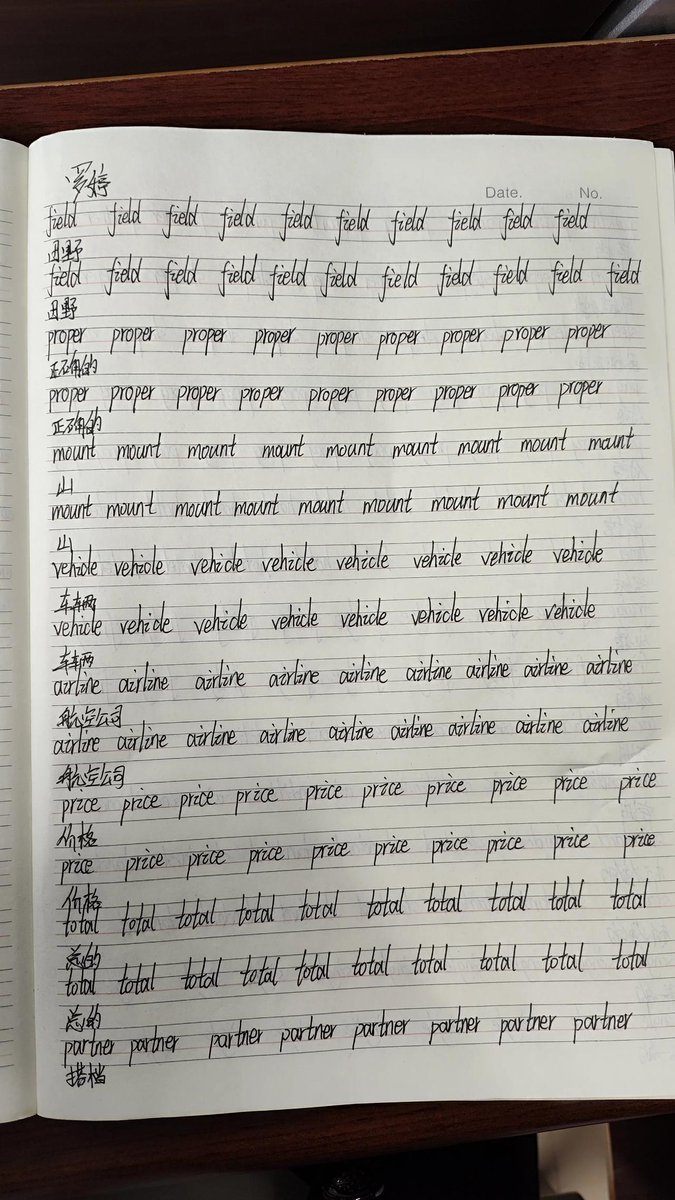 罗婷
Date. No.
field field field field field field field field field field
田野
field field field field field field field field field field field
田野
proper proper proper proper proper proper proper proper proper
正确的
proper proper proper proper proper proper proper proper proper
正确的
mount mount mount mount mount mount mount mount mount
山
mount mount mount mount mount mount mount mount mount
山
vehicle vehicle vehicle vehicle vehicle vehicle vehicle vehicle
车辆
vehicle vehicle vehicle vehicle vehicle vehicle vehicle vehicle
车辆
airline airline airline airline airline airline airline airline airline
航空公司
airline airline airline airline airline airline airline airline airline
航空公司
price price price price price price price price price price
价格
price price price price price price price price price price
价格
total total total total total total total total total total
总的
total total total total total total total total total total
总的
partner partner partner partner partner partner partner partner
搭档